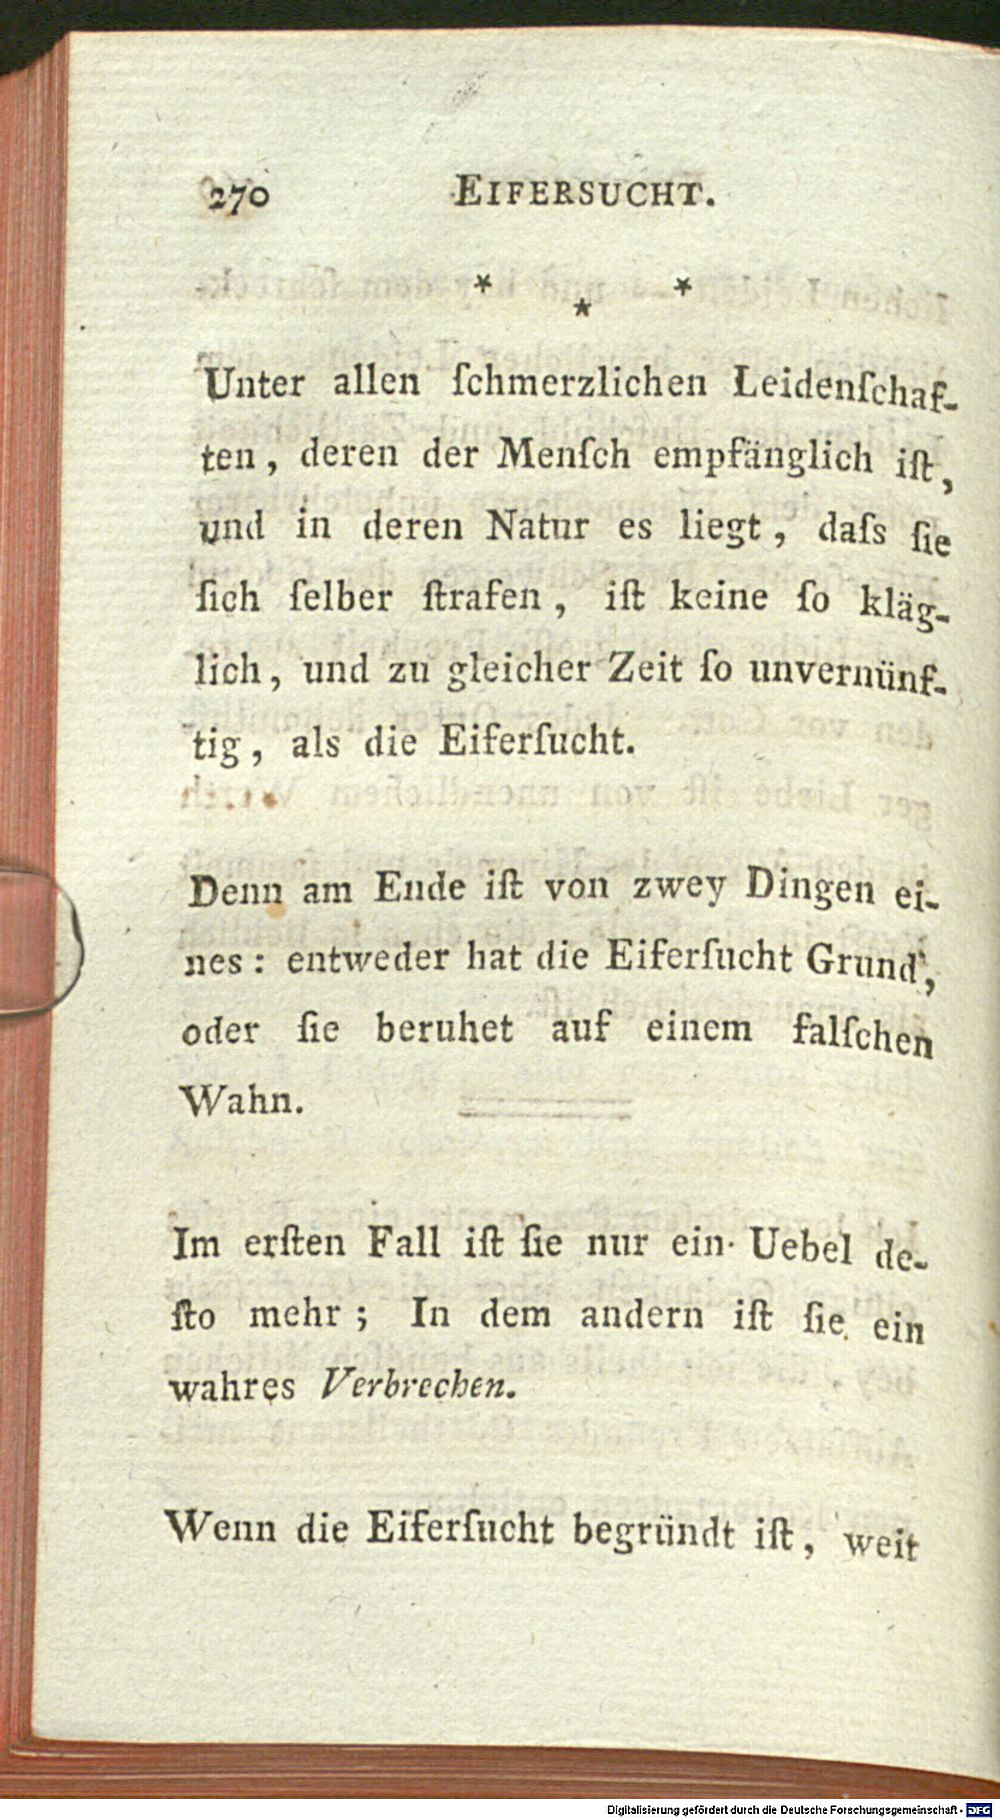 270 EIFERSUCHT.
* * *
Unter allen ſchmerzlichen Leidenſchaf-
ten, deren der Menſch empfänglich iſt,
und in deren Natur es liegt, daſs ſie
ſich ſelber ſtrafen, iſt keine ſo kläg-
lich, und zu gleicher Zeit ſo unvernünf-
tig, als die Eiferſucht.
Denn am Ende iſt von zwey Dingen ei-
nes: entweder hat die Eiferſucht Grund,
oder ſie beruhet auf einem falſchen
Wahn.
Im erſten Fall iſt ſie nur ein Uebel de-
ſto mehr; In dem andern iſt ſie ein
wahres Verbrechen.
Wenn die Eiferſucht begründt iſt, weit
Digitalisierung gefördert durch die Deutsche Forschungsgemeinschaft - DFG